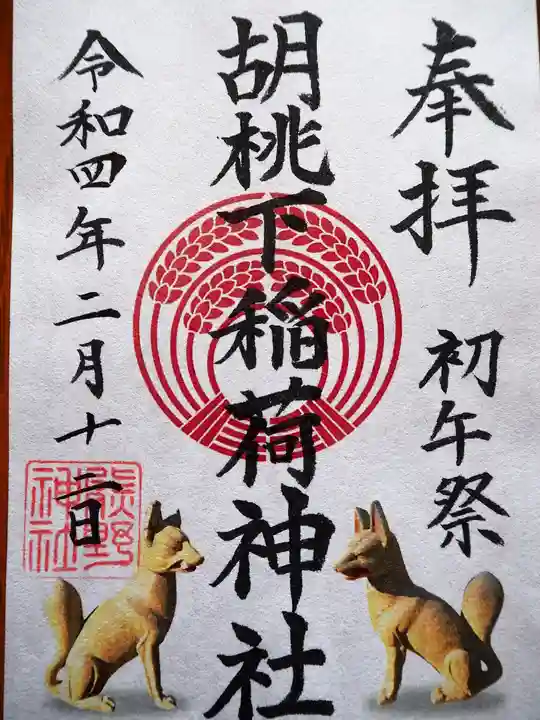 奉拝 初午祭
胡桃下稲荷神社
令和四年二月十二日
熊野
神社